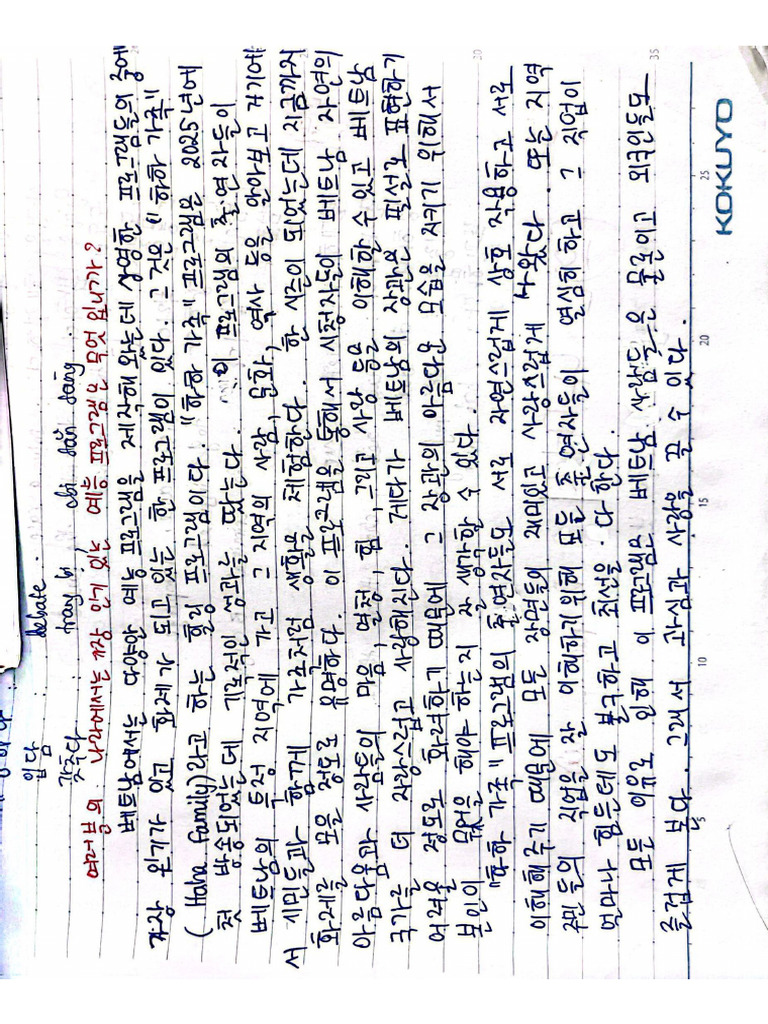 debate.
입담
갖추다 trang bị, chỉ sẵn sàng
여러분의 나라에서는 가장 인기 있는 예능 프로그램은 무엇 입니까?
베트남에서는 다양한 예능 프로그램을 제작해 왔는데 상영한 프로그램들의 중에
가장 인기가 있고 화제가 되고 있는 한 프로그램이 있다. 그것은 "하하 가족"
(Haha Family)라고 하는 힐링 프로그램이다. "하하 가족" 프로그램은 2025년에
첫 방송되었는데 기록적인 성과를 땄는다. 이 프로그램의 출연자들이
베트남의 특정 지역에 가고 그 지역의 사람, 문화, 역사 등을 알아보고 거기에
서 주민들과 함께 가족처럼 생활을 체험한다. 한 시즌이 되었는데 지금까지
화제를 모을 정도로 유명하다. 이 프로그램을 통해서 시청자들이 베트남 자연의
아름다움과 사람들의 마음, 열정, 힘, 그리고 사랑 등을 이해할 수 있고 베트남
국가를 더 자랑스럽고 사랑해진다. 게다가 베트남의 장관은 필설로 표현하기
어려울 정도로 화려하기 때문에 그 장관의 아름다운 모습을 지키기 위해서
본인이 무엇을 해야 하는지 잘 생각할 수 있다.
"하하 가족" 프로그램의 출연자들도 서로 자연스럽게 상호 작용하고 서로
이해해주기 때문에 모든 장면들이 재미있고 사랑스럽게 나왔다. 또는 지역
주민들의 직업을 잘 이해하기 위해 모든 출연자들이 열심히 하고 그 직업이
얼마나 힘든데도 불구하고 최선을 다 한다.
모든 이유로 인해 이 프로그램은 베트남 사람들은 물론이고 외국인들도
즐겁게 본다. 그래서 관심과 사랑을 끌 수 있다.
KOKUYO